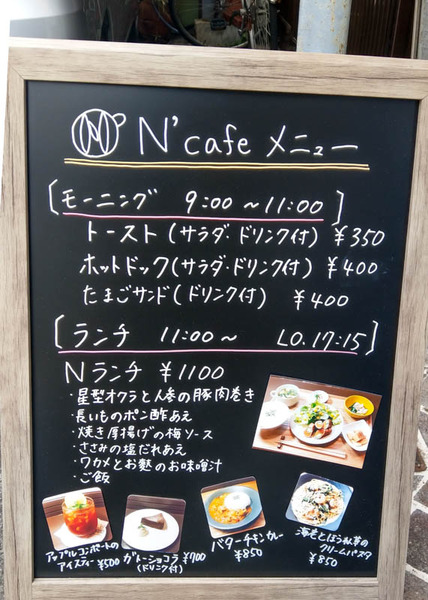 N° N'cafe メニュー
[モーニング 9:00~11:00]
トースト(サラダ・ドリンク付) ¥350
ホットドック(サラダ・ドリンク付) ¥400
たまごサンド(ドリンク付) ¥400
[ランチ 11:00~ LO.17:15]
Nランチ ¥1100
・星型オクラと人参の豚肉巻き
・長いものポン酢あえ
・焼き厚揚げの梅ソース
・ささみの塩だれあえ
・ワカメとお麩のお味噌汁
・ご飯
アップルコンポートの
アイスティー ¥500
ガトーショコラ ¥700
(ドリンク付)
バターチキンカレー
¥850
海老とほうれん草の
クリームパスタ
¥850